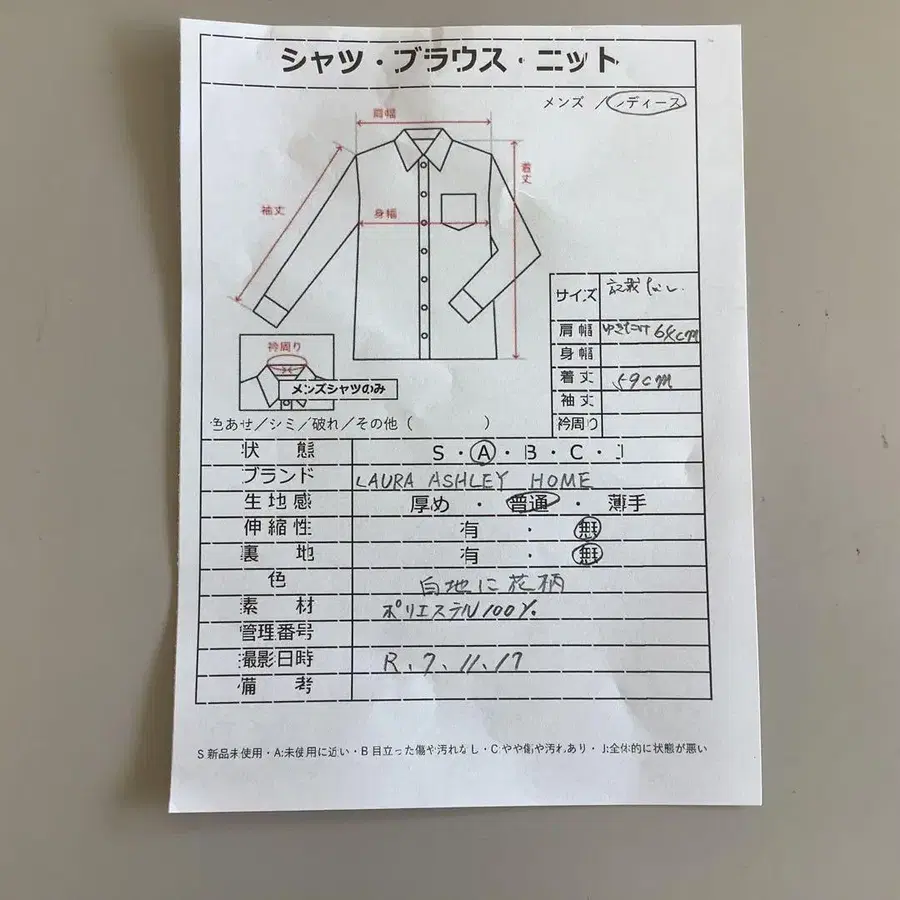 シャツ・ブラウス・ニット
メンズ／レディース
肩幅
着丈
袖丈
身幅
サイズ 記載なし.
肩幅 ゆきたけ 64cm
身幅
着丈 59cm
袖丈
衿周り
衿周り
メンズシャツのみ
色あせ／シミ／破れ／その他（　　　　　）
状態 S・A・B・C・J
ブランド LAURA ASHLEY HOME
生地感 厚め・普通・薄手
伸縮性 有・無
裏地 有・無
色 白地に花柄
素材 ポリエステル100%.
管理番号
撮影日時 R.7.11.17
備考
S 新品未使用・A:未使用に近い・B 目立った傷や汚れなし・C やや傷や汚れあり・J:全体的に状態が悪い